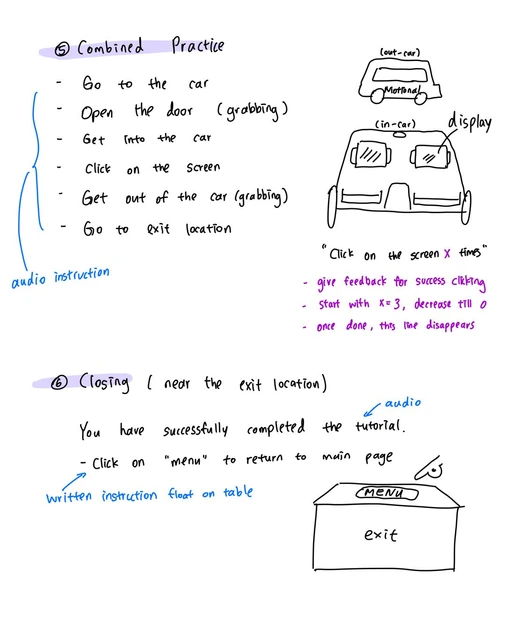 ⑤ Combined Practice
- Go to the car
- Open the door (grabbing)
- Get into the car
- Click on the screen
- Get out of the car (grabbing)
- Go to exit location
audio instruction
(out-car)
Motional
(in-car)
display
"Click on the screen X times"
- give feedback for success clikking
- start with x=3, decrease till 0
- once done, this line disappears
⑥ Closing (near the exit location)
audio
You have successfully completed the tutorial.
- Click on "menu" to return to main page
written instruction float on table
MENU
exit